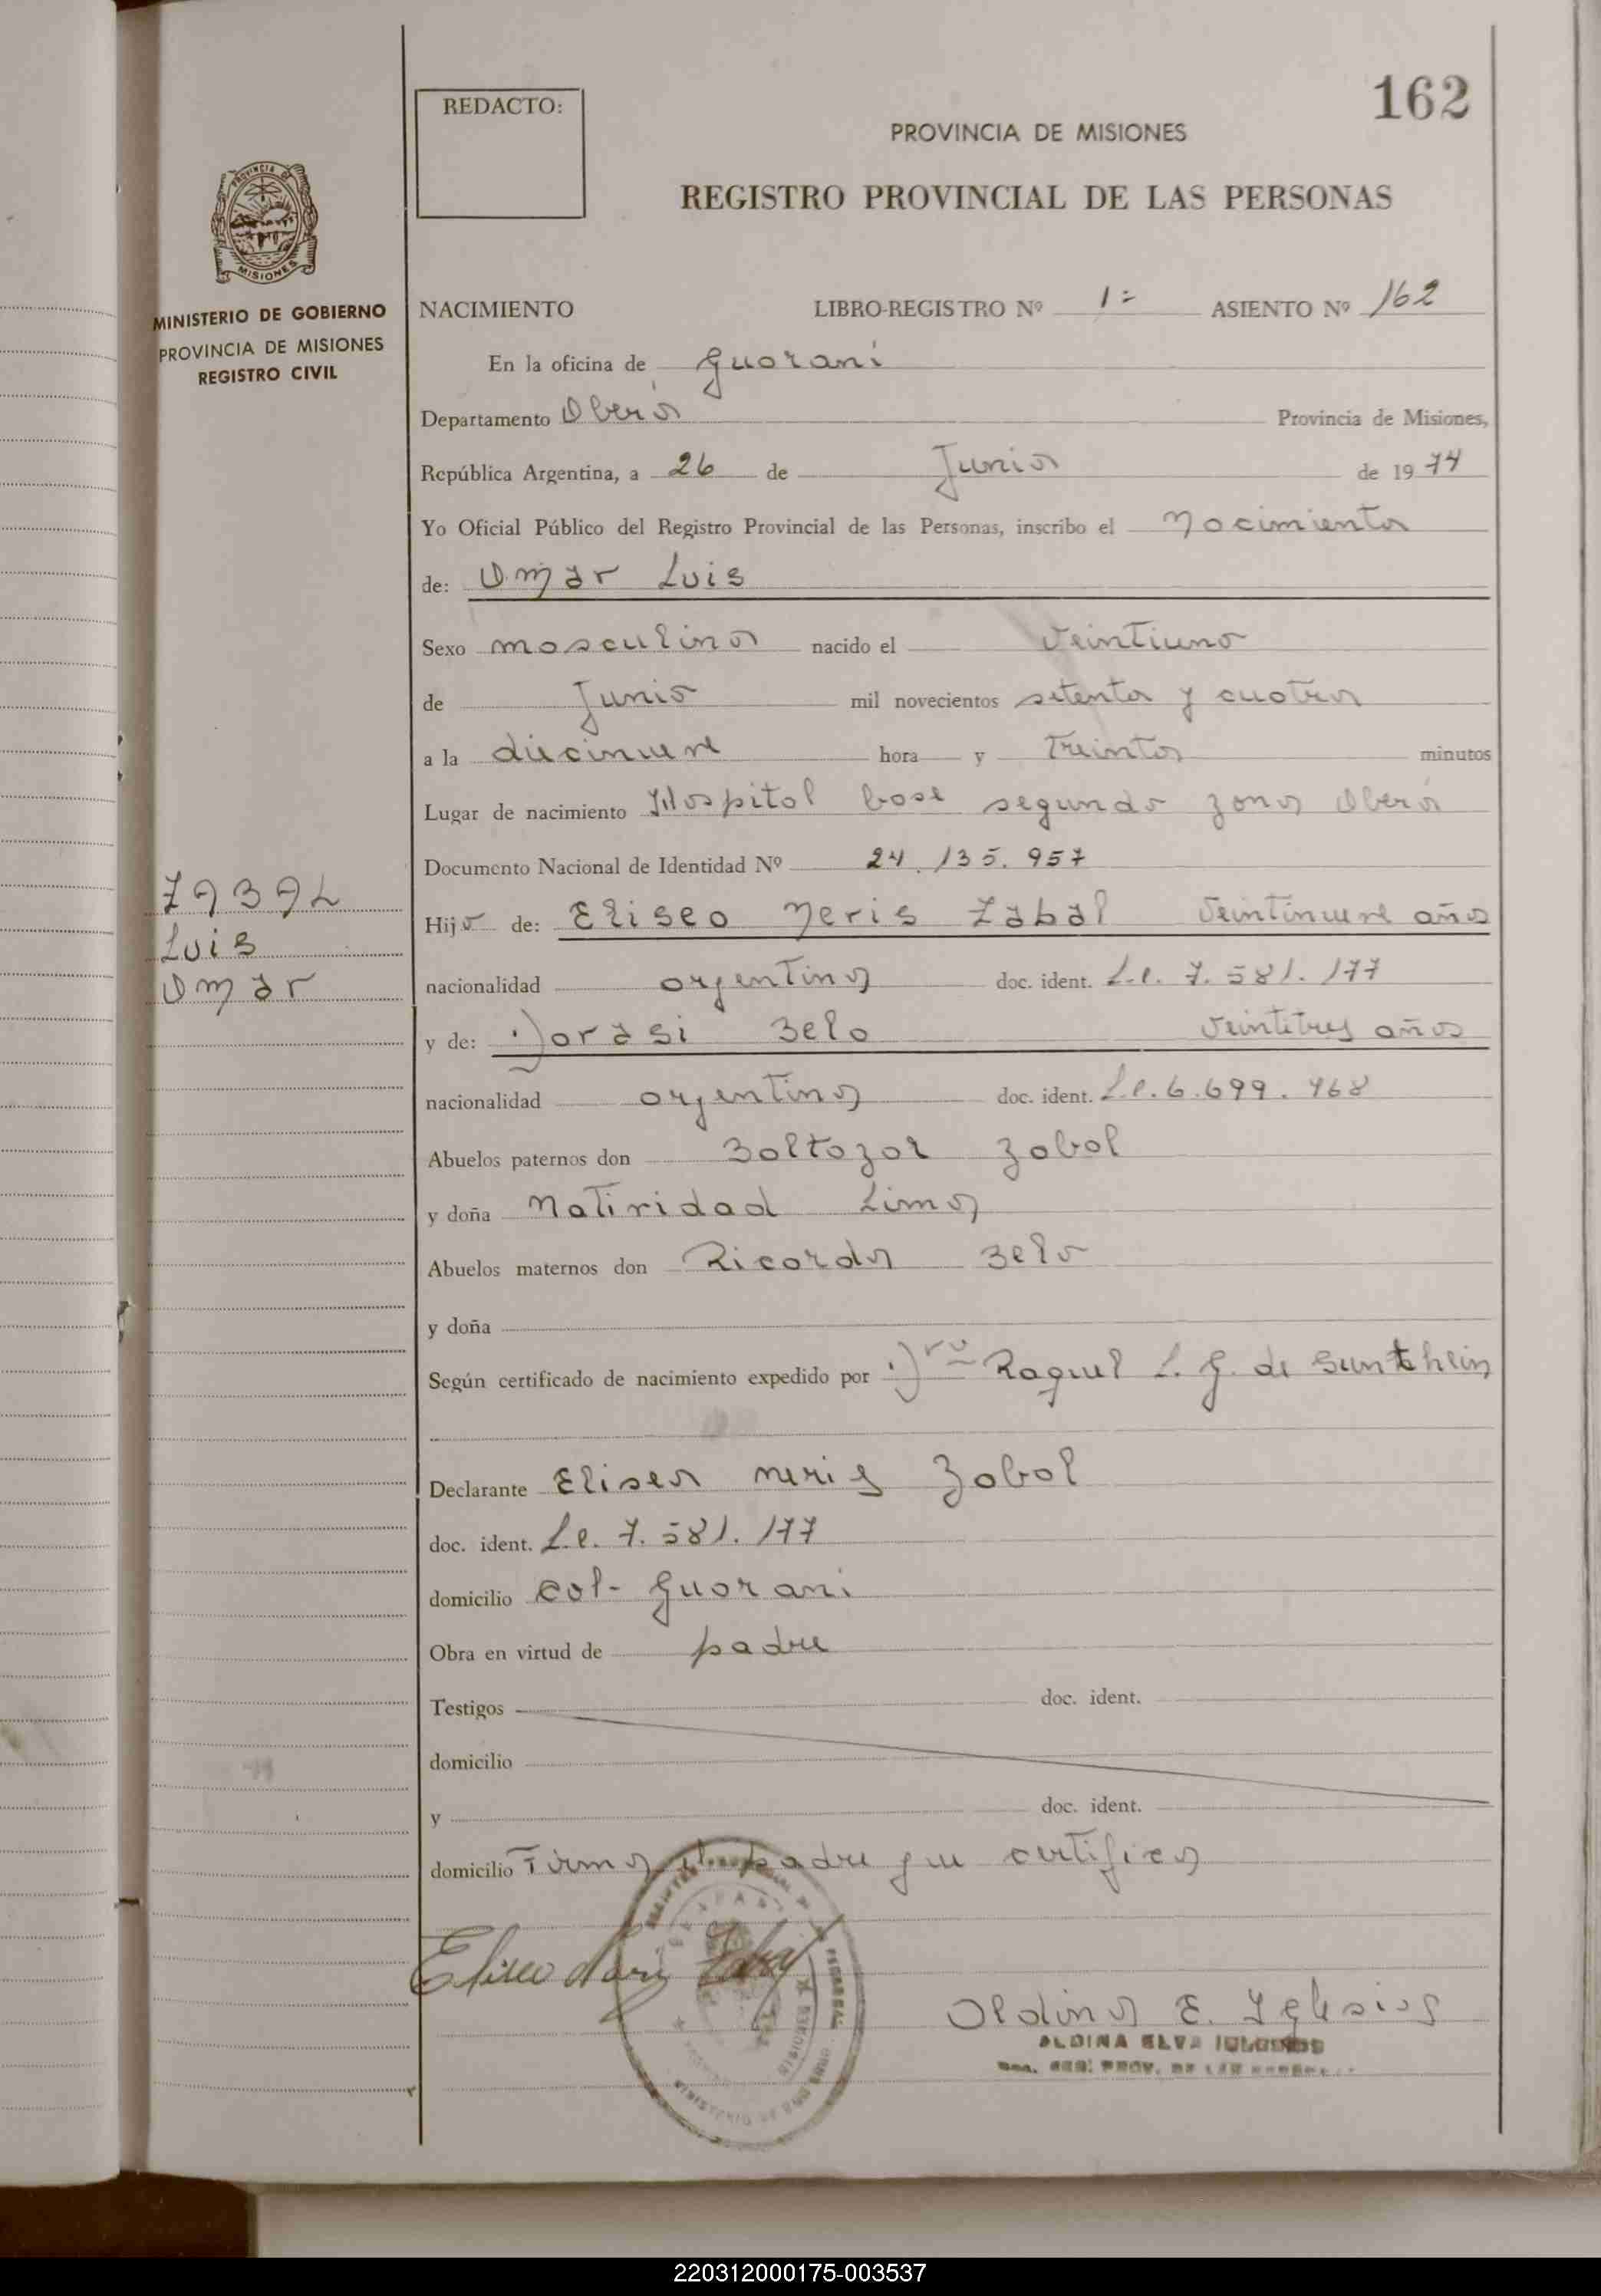 162
REDACTO:
PROVINCIA DE MISIONES
REGISTRO PROVINCIAL DE LAS PERSONAS
PROVINCIA DE
MISIONES
MINISTERIO DE GOBIERNO
PROVINCIA DE MISIONES
REGISTRO CIVIL
NACIMIENTO LIBRO-REGISTRO Nº 1= ASIENTO Nº 162
En la oficina de Guarani
Departamento Oberá Provincia de Misiones,
República Argentina, a 26 de Junio de 1974
Yo Oficial Público del Registro Provincial de las Personas, inscribo el nacimiento
de: Omar Luis
Sexo masculino nacido el veintiuno
de Junio mil novecientos setenta y cuatro
a la diecinueve hora y treinta minutos
Lugar de nacimiento Hospital base segunda zona Oberá
Documento Nacional de Identidad Nº 24.135.957
Hijo de: Eliseo Neris Zabal veintinueve años
nacionalidad argentina doc. ident. L.e. 7.581.177
y de: Dorasi Belo veintitres años
nacionalidad argentina doc. ident. L.e. 6.699.468
Abuelos paternos don Baltazar Zabal
y doña Natividad Lima
Abuelos maternos don Ricardo Belo
y doña
Según certificado de nacimiento expedido por Dra Raquel L. G. de
Declarante Eliseo Neris Zabal
doc. ident. L.e. 7.581.177
domicilio col- Guarani
Obra en virtud de padre
Testigos doc. ident.
domicilio
y doc. ident.
domicilio Firma el padre que certifica
Eliseo Neris Zabal
Aldina E. Iglesias
ALDINA ELVA IGLESIAS
Luis
Omar
220312000175-003537